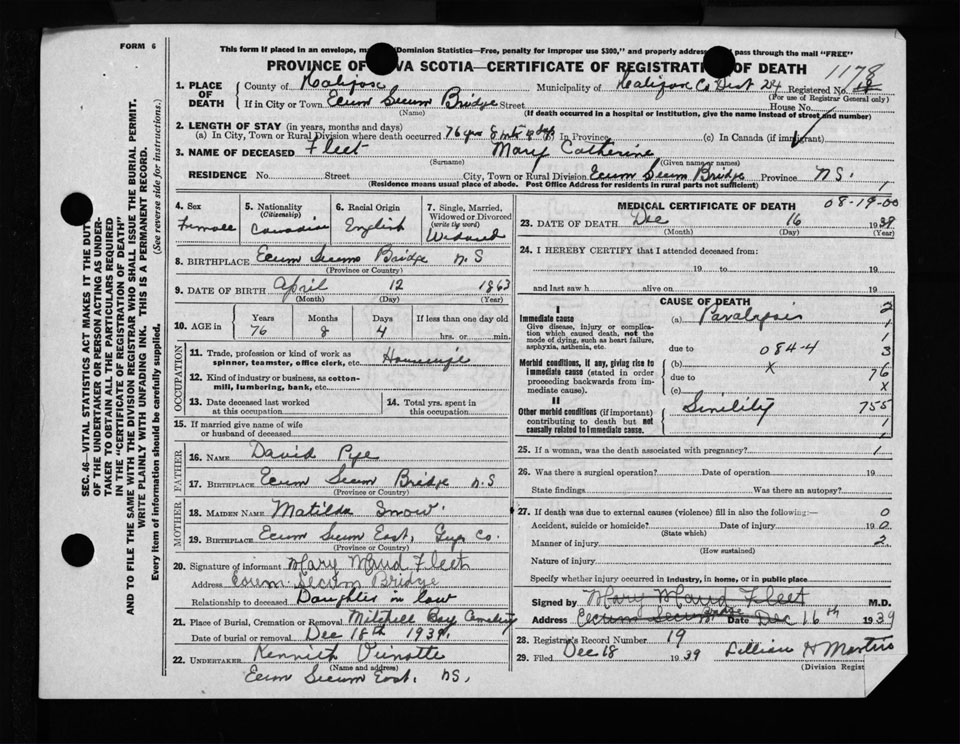 FORM 6
This form if placed in an envelope, ma Dominion Statistics—Free, penalty for improper use $300," and properly address pass through the mail "FREE"
PROVINCE OF VA SCOTIA—CERTIFICATE OF REGISTRATION OF DEATH
1178
1. PLACE OF DEATH County of Halifax Municipality of Halifax Co Dist 24 Registered No.
(For use of Registrar General only)
If in City or Town Ecum Secum Bridge Street House No.
(Name) (If death occurred in a hospital or institution, give the name instead of street and number)
2. LENGTH OF STAY (in years, months and days)
(a) In City, Town or Rural Division where death occurred 76 yrs 8 mts 4 dys (b) In Province (c) In Canada (if immigrant)
3. NAME OF DECEASED Fleet Mary Catherine
(Surname) (Given name or names)
RESIDENCE No. Street City, Town or Rural Division Ecum Secum Bridge Province N.S. 1
(Residence means usual place of abode. Post Office Address for residents in rural parts not sufficient)
SEC. 46—VITAL STATISTICS ACT MAKES IT THE DUTY
OF THE UNDERTAKER OR PERSON ACTING AS UNDER-
TAKER TO OBTAIN ALL THE PARTICULARS REQUIRED
IN THE "CERTIFICATE OF REGISTRATION OF DEATH"
AND TO FILE THE SAME WITH THE DIVISION REGISTRAR WHO SHALL ISSUE THE BURIAL PERMIT.
WRITE PLAINLY WITH UNFADING INK. THIS IS A PERMANENT RECORD.
Every item of information should be carefully supplied. (See reverse side for instructions.)
4. Sex 5. Nationality (Citizenship) 6. Racial Origin 7. Single, Married, Widowed or Divorced (write the word)
Female Canadian English Widowed
8. BIRTHPLACE Ecum Secum Bridge N.S
(Province or Country)
9. DATE OF BIRTH April 12 1863
(Month) (Day) (Year)
10. AGE in Years Months Days If less than one day old
76 8 4 hrs. or min.
OCCUPATION
11. Trade, profession or kind of work as spinner, teamster, office clerk, etc. Housewife
12. Kind of industry or business, as cotton-mill, lumbering, bank, etc.
13. Date deceased last worked at this occupation 14. Total yrs. spent in this occupation
15. If married give name of wife or husband of deceased
FATHER
16. NAME David Pye
17. BIRTHPLACE Ecum Secum Bridge N.S
(Province or Country)
MOTHER
18. MAIDEN NAME Matilda Snow
19. BIRTHPLACE Ecum Secum East, Guys Co.
(Province or Country)
20. Signature of informant Mary Maud Fleet
Address Ecum Secum Bridge
Relationship to deceased Daughter in law
21. Place of Burial, Cremation or Removal Mitchell Bay Cemetery
Date of burial or removal Dec 18th 1939
22. UNDERTAKER Kennith
(Name and address)
Ecum Secum East, NS.
MEDICAL CERTIFICATE OF DEATH 08-19-00
23. DATE OF DEATH Dec 16 1939
(Month) (Day) (Year)
24. I HEREBY CERTIFY that I attended deceased from:
19 to 19
and last saw h alive on 19
CAUSE OF DEATH
I
Immediate cause (a) Paralapsis
Give disease, injury or complication which caused death, not the mode of dying, such as heart failure, asphyxia, asthenia, etc.
due to 084-4
Morbid conditions, if any, giving rise to immediate cause (stated in order proceeding backwards from immediate cause).
(b) X
due to
(c)
II
Other morbid conditions (if important) contributing to death but not causally related to immediate cause.
Sinility
2
1
1
3
1
76
X
755
1
1
25. If a woman, was the death associated with pregnancy?
26. Was there a surgical operation? Date of operation 19
State findings Was there an autopsy?
27. If death was due to external causes (violence) fill in also the following:— 0
Accident, suicide or homicide? Date of injury 19 0
(State which)
Manner of injury 2
(How sustained)
Nature of injury
Specify whether injury occurred in industry, in home, or in public place
Signed by Mary Maud Fleet M.D.
Address Ecum Secum Bridge Date Dec 16th 1939
28. Registrar's Record Number 19
29. Filed Dec 18 1939 Lillian H
(Division Regist